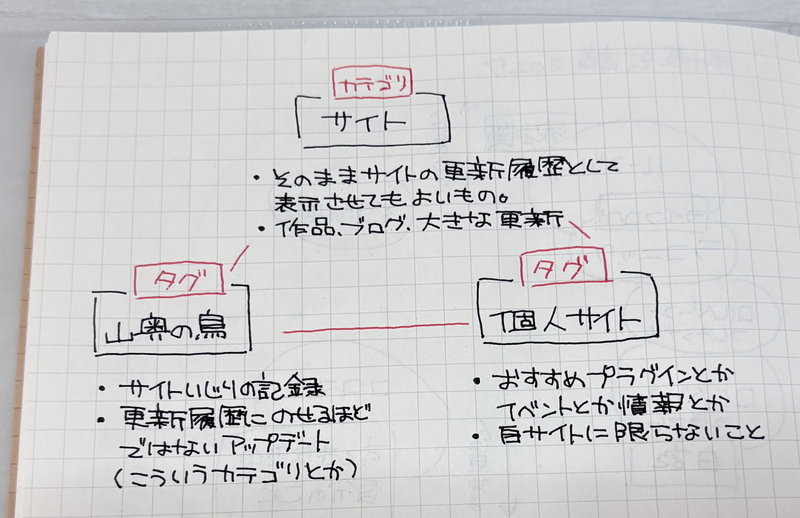 カテゴリ
サイト
・そのままサイトの更新履歴として
表示させてもよいもの。
・作品、ブログ、大きな更新
タグ
山奥の鳥
・サイトいじりの記録
・更新履歴にのせるほど
ではないアップデート
(こういうカテゴリとか)
タグ
個人サイト
・おすすめプラグインとか
イベントとか情報とか
・自サイトに限らないこと